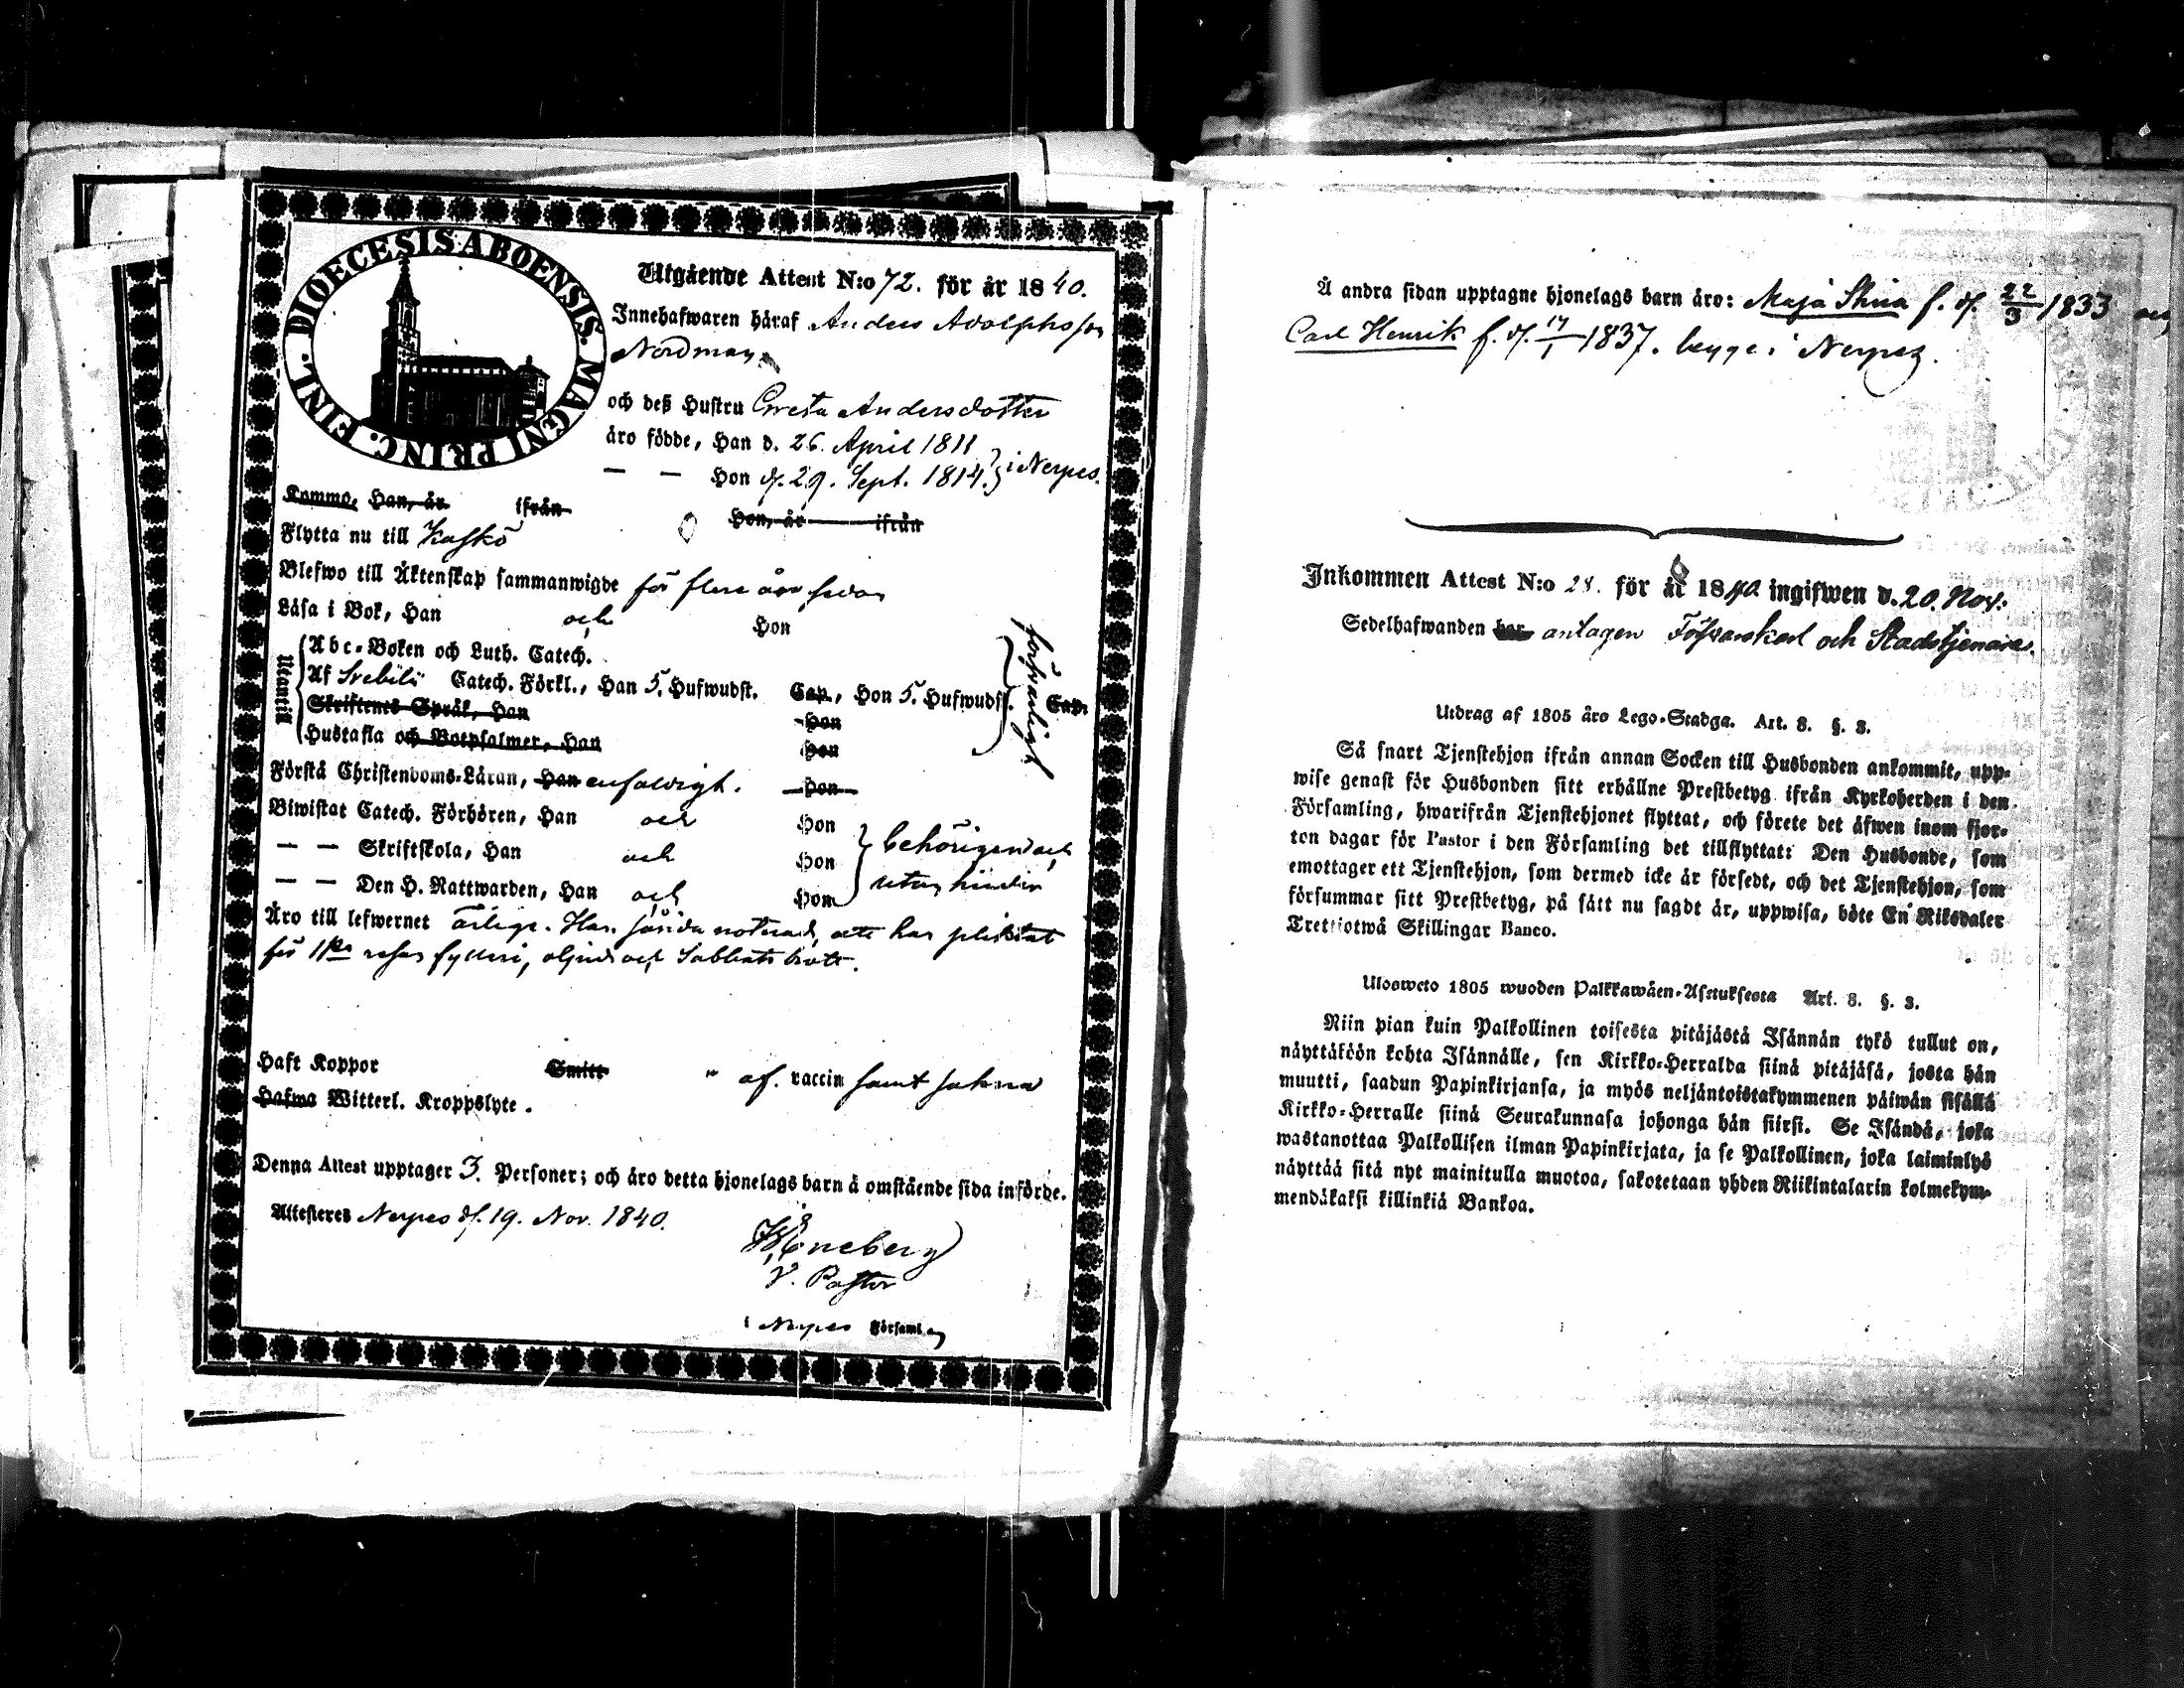 DIOECESIS ABOENSIS. MAGNI PRINC. FINL.
Utgående Attest N:o 72. för år 1840.
Innehafwaren häraf Anders Adolphsson
Nordman
och deß Hustru Greta Andersdotter
äro födde, Han d. 26. April 1811
— — Hon d. 29. Sept. 1814. } i Nerpes.
Komma, Han, år ifrån Hon, år ifrån
Flytta nu till Kaskö
Blefwo till Äktenskap sammanwigde för flere år sedan
Läsa i Bok, Han och Hon
Utantill
Abc-Boken och Luth. Catech.
Af Svebilii Catech. Förkl., Han 5. Hufwudst. Cap., Hon 5. Hufwudst. Cap.
försvarligt
Skriftenes Språk, Han Hon
Hustafla och Botpsalmer, Han Hon
Förstå Christendoms-Läran, Han enfaldigt. Hon
Biwistat Catech. Förhören, Han och Hon
— — Skriftskola, Han och Hon } behörigen och
— — Den H. Nattwarden, Han och Hon utan hinder
Äro till lefwernet ärlige. Han
för fylleri, och Sabbatsbrott.
Haft Koppor Smitt " af. vaccin samt sakna
Hafwa Witterl. Kroppslyte.
Denna Attest upptager 3. Personer; och äro detta hjonelags barn å omstående sida införde.
Attesteres Nerpes d. 19. Nov. 1840.
Eneberg
V. Pastor
i Nerpes Församl.
Å andra sidan upptagne hjonelags barn äro: Maja Stina f. d. 22/3 1833 och
Carl Henrik f. d. 17/1 1837. begge i Nerpes.
Inkommen Attest N:o 28. för år 1840 ingifwen d. 20. Nov.
Sedelhafwanden har antagen Försvarskarl och Stadstjenare.
Utdrag af 1805 åro Lego-Stadga. Art. 8. §. 3.
Så snart Tjenstehjon ifrån annan Socken till Husbonden ankommit, upp-
wise genast för Husbonden sitt erhållne Prestbetyg ifrån Kyrkoherden i den
Församling, hwarifrån Tjenstehjonet flyttat, och förete det äfwen inom fjor-
ton dagar för Pastor i den Församling det tillflyttat: Den Husbonde, som
emottager ett Tjenstehjon, som dermed icke är försedt, och det Tjenstehjon, som
försummar sitt Prestbetyg, på sätt nu sagdt är, uppwisa, böte En Riksdaler
Trettiotwå Skillingar Banco.
Ulosweto 1805 wuoden Palkkawäen-Asetuksesta Art. 8. §. 3.
Niin pian kuin Palkollinen toisesta pitäjästä Isännän tykö tullut on,
näyttäköön kohta Isännälle, sen Kirkko-Herralda siinä pitäjäsä, josta hän
muutti, saadun Papinkirjansa, ja myös neljäntoistakymmenen päiwän sisällä
Kirkko-Herralle siinä Seurakunnasa johonga hän siirsi. Se Isändä, joka
wastanottaa Palkollisen ilman Papinkirjata, ja se Palkollinen, joka laiminlyö
näyttää sitä nyt mainitulla muotoa, sakotetaan yhden Riikintalarin kolmekym-
mendäkaksi killinkiä Bankoa.